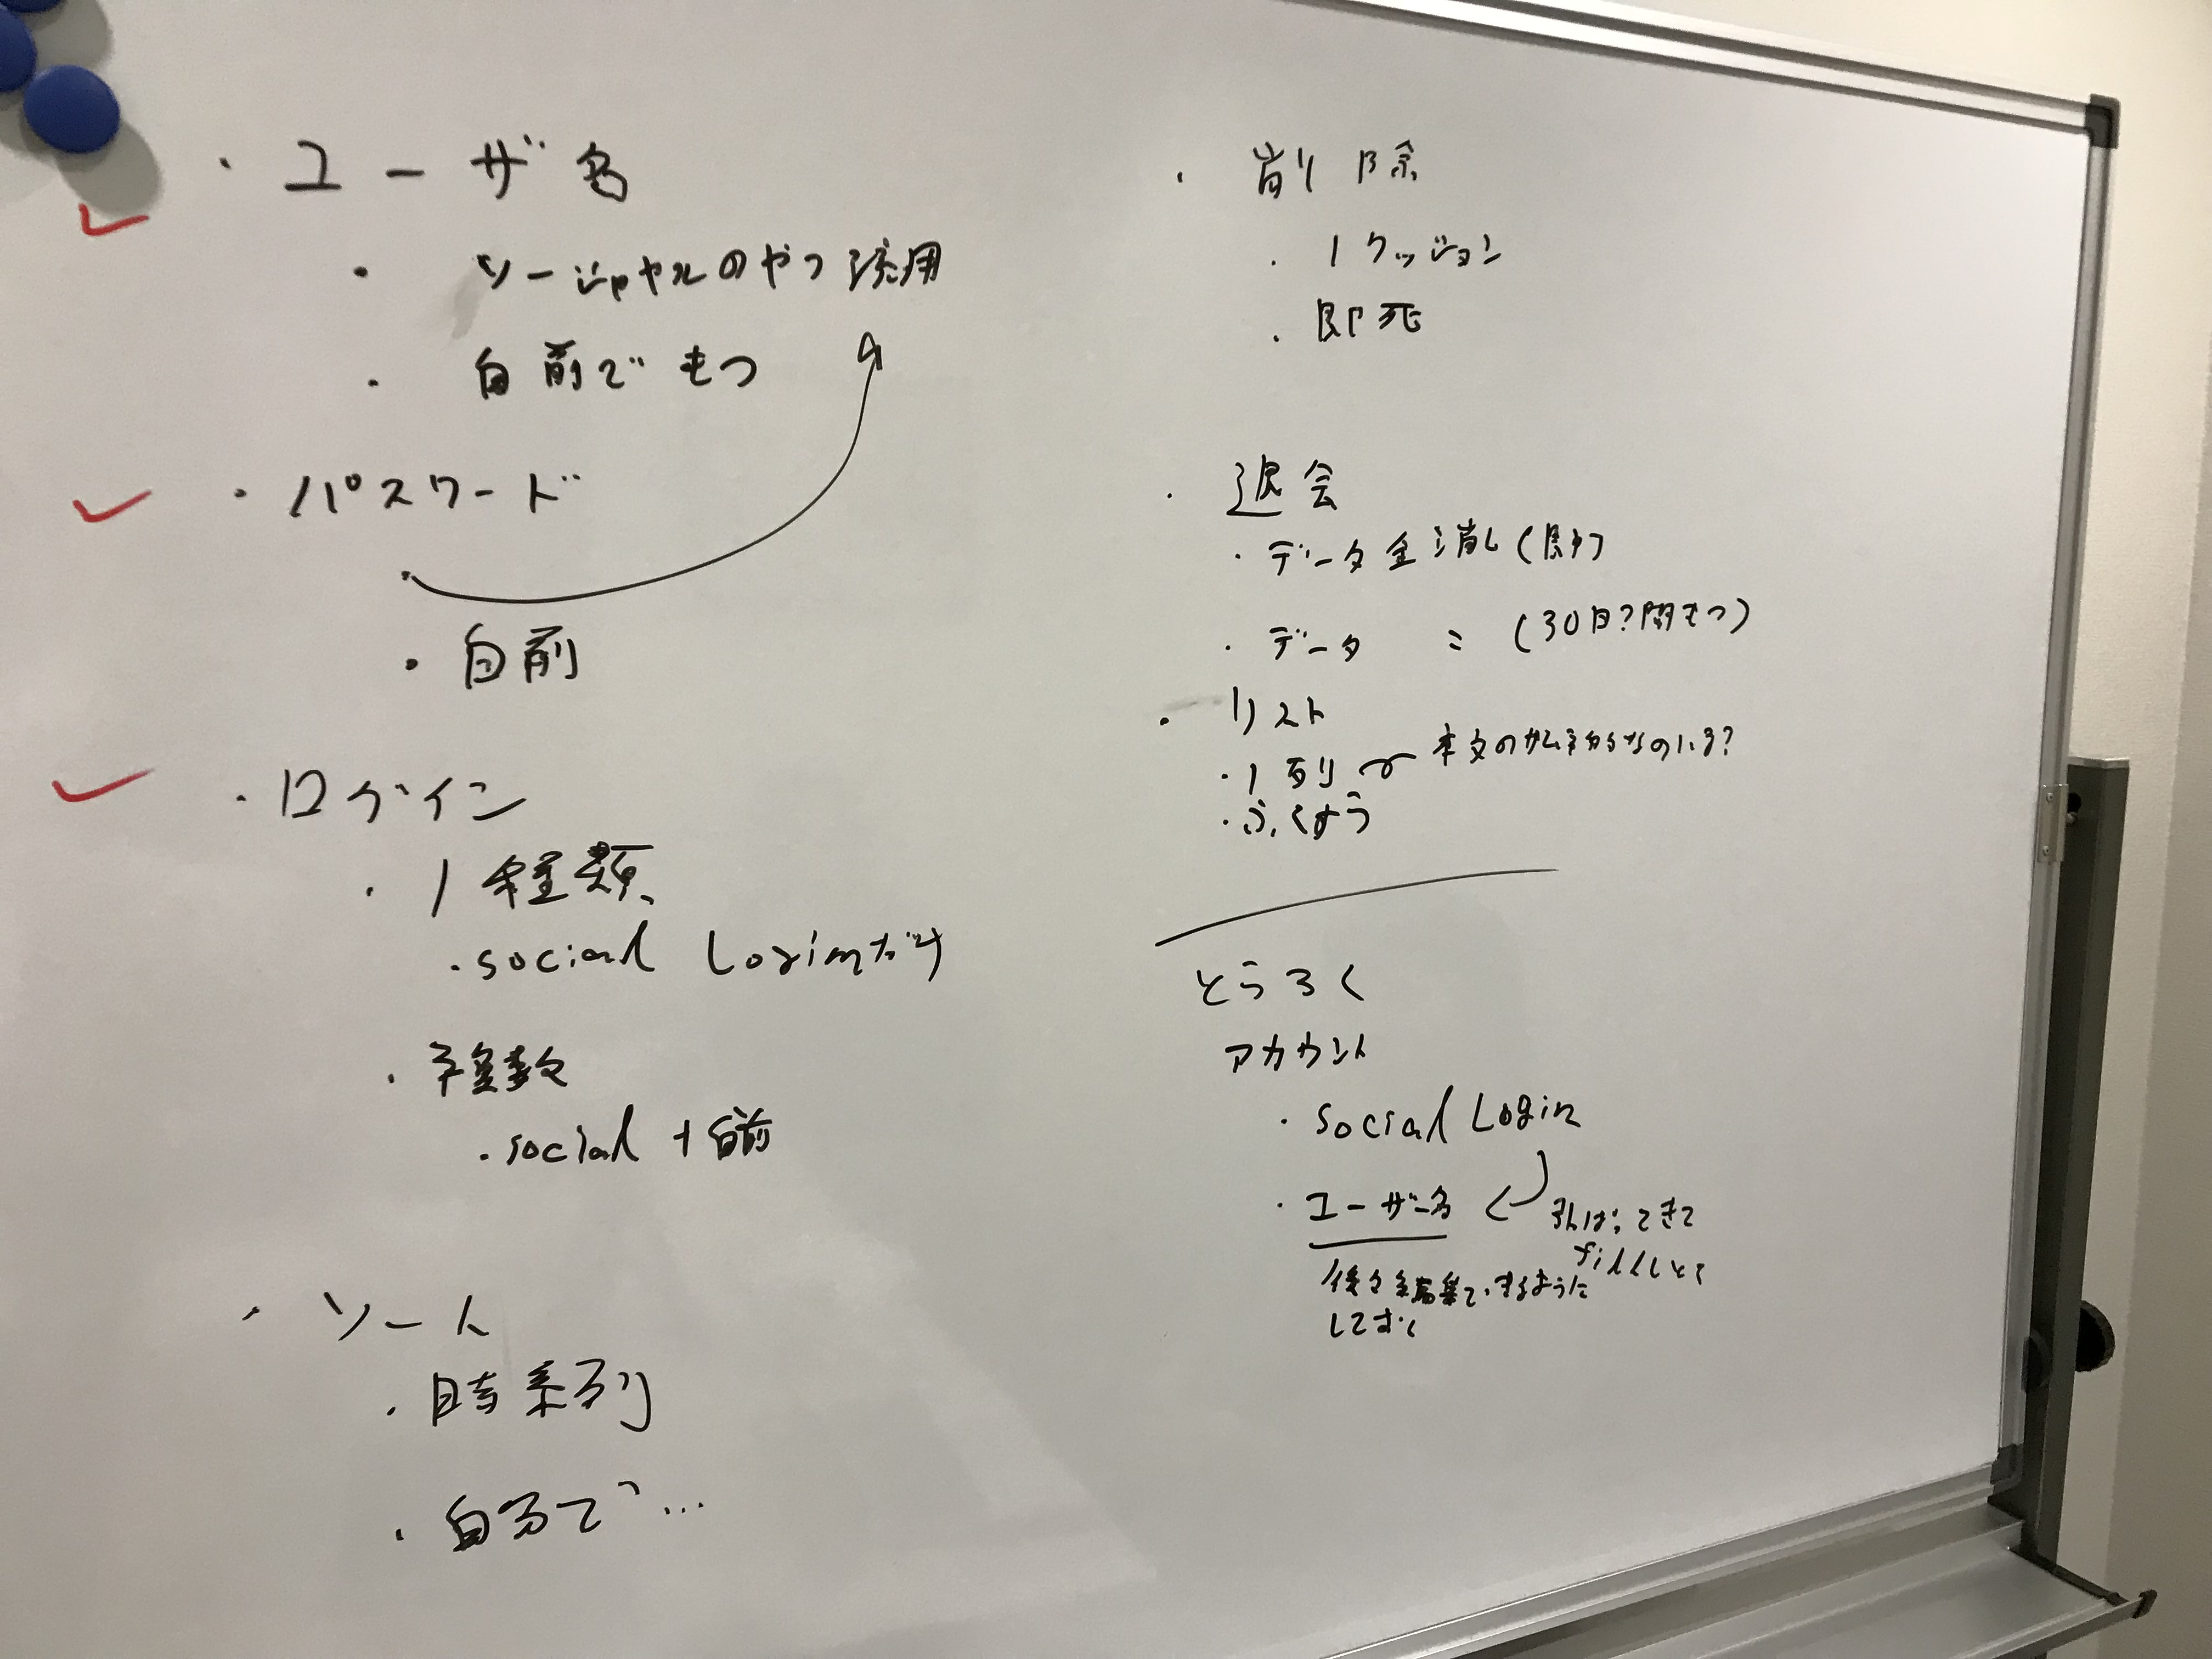 ・ユーザ名
・ソーシャルのやつ流用
・自前でもつ
・パスワード
・自前
・ログイン
・1種類
・social Loginだけ
・複数
・social + 自前
・ソート
・時系列
・自分で…
・削除
・1クッション
・即死
・退会
・データ全消し(即)
・データ 〃 (30日?間もつ)
・リスト
・1列
本文のサムネ的なのいる?
・ふくすう
とうろく
アカウント
・social Login
・ユーザー名
fillしとく
後々編集できるように
しておく